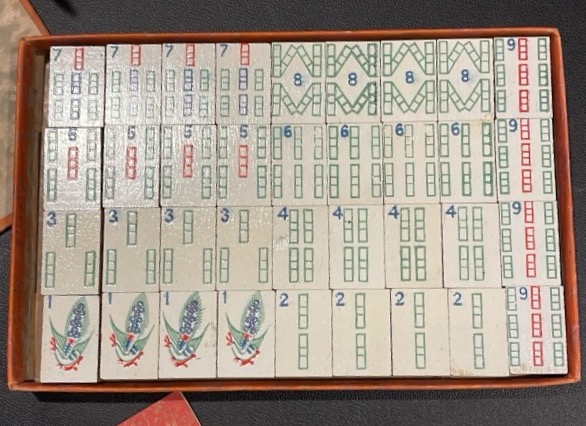 7 7 7 7 8 8 8 8 9
5 5 5 5 6 6 6 6 9
3 3 3 3 4 4 4 4 9
1 1 1 1 2 2 2 2 9